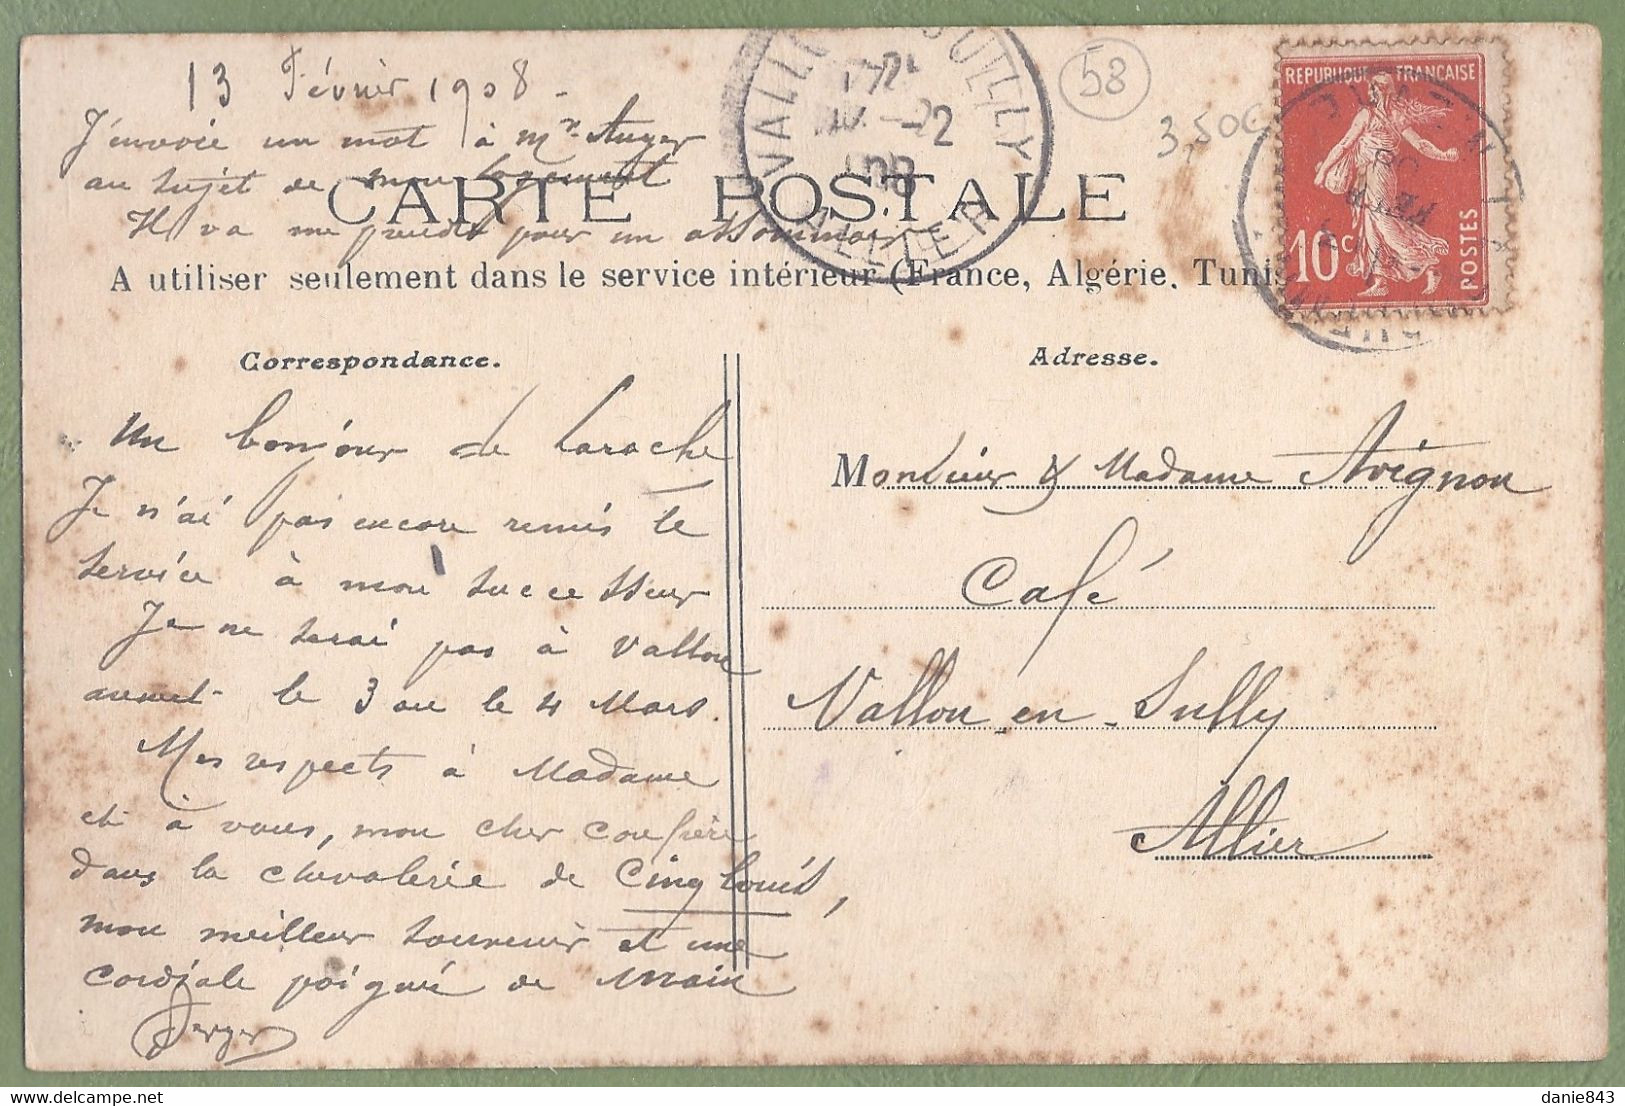 13 Février 1908 -
J'envoie un mot à Mr Auger
au sujet de mon logement
Il va me prendre pour un assommoir
CARTE POSTALE
A utiliser seulement dans le service intérieur (France, Algérie, Tunis
58
3,50€
REPUBLIQUE FRANÇAISE
10c
POSTES
VALLON EN SULLY
-2
08
ALLIER
Correspondance.
Un bonjour de Laroche
Je n'ai pas encore remis le
service à mon successeur
Je ne serai pas à Vallon
avant le 3 ou le 4 Mars.
Mes respects à Madame
et à vous, mon cher confrère
dans la chevalerie de Cinq Louis,
mon meilleur souvenir et une
cordiale poignée de main
Adresse.
Monsieur & Madame Avignon
Café
Vallon-en-Sully
Allier
danie843